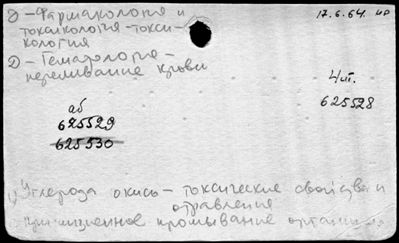 2) - Фармакология и
токсикология - токси-
кология
2) - Гематология -
переливание крови
17.6.64. ир
4 шт.
625528
аб
625529
625530
1) Углерода окись - токсические свойства и
отравление
прижизненное промывание организма